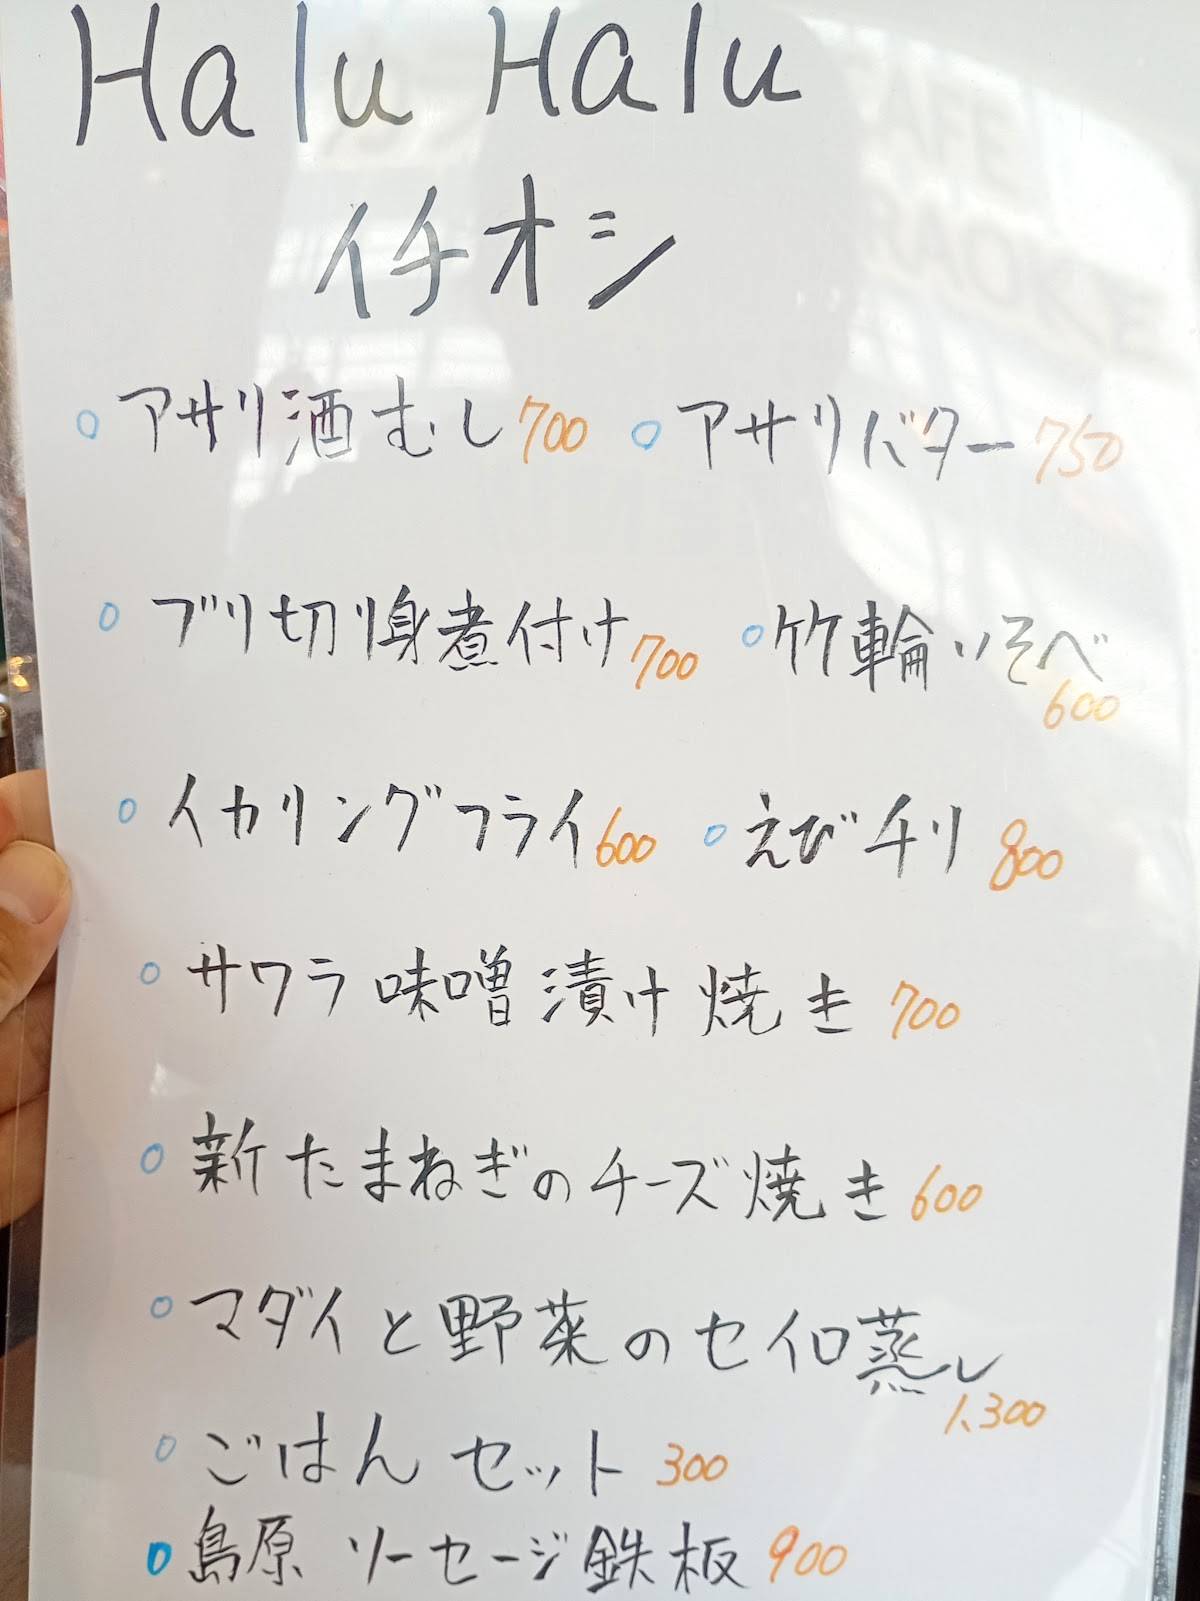 Halu Halu
イチオシ
○アサリ酒むし700 ○アサリバター750
○ブリ切り身煮付け700 ○竹輪いそべ600
○イカリングフライ600 ○えびチリ800
○サワラ味噌漬け焼き700
○新たまねぎのチーズ焼き600
○マダイと野菜のセイロ蒸し1,300
○ごはんセット300
○島原ソーセージ鉄板900